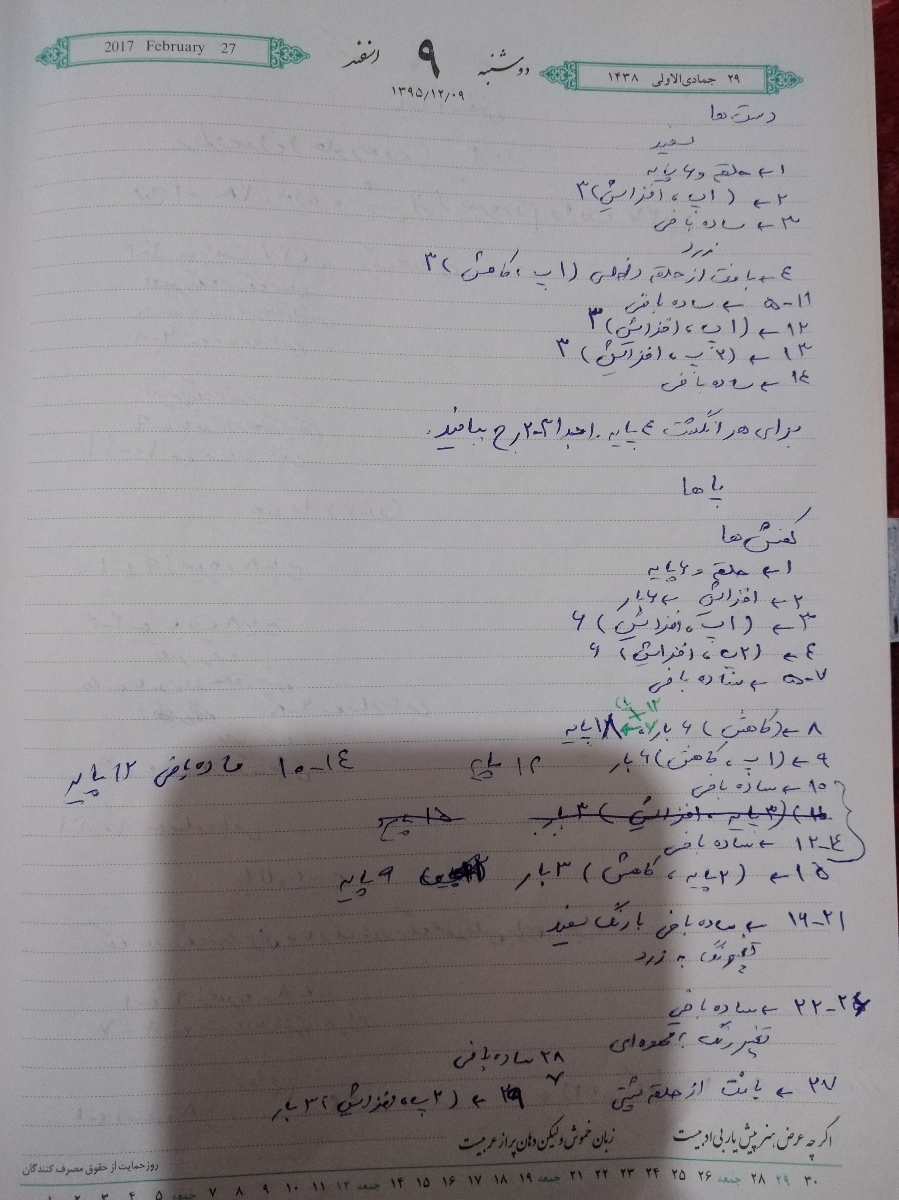 2017 February 27
اسفند
۹
دوشنبه
۱۳۹۵/۱۲/۰۹
۲۹ جمادی‌الاولی ۱۴۳۸
دست ها
سفید
۱← حلقه و ۶ پایه
۲← (۱پ، افزایش) ۳
۳← ساده بافی
زرد
۴← بافت از حلقه داخلی (۱پ، کاهش) ۳
۵-۱۱ ← ساده بافی
۱۲← (۱پ، افزایش) ۳
۱۳← (۲پ، افزایش) ۳
۱۴← ساده بافی
برای هر انگشت ۴ پایه. رج ببافید.
پا ها
کفش ها
۱← حلقه و ۶ پایه
۲← افزایش ۶بار
۳← (۱پ، افزایش) ۶
۴← (۲پ، افزایش) ۶
۵-۷ ← ساده بافی
۸←(کاهش) ۶ بار ۱۸ پایه
۹←(۱پ، کاهش) ۶ بار ۱۲ پایه
۱۰-۱۴ ساده بافی ۱۲ پایه
۱۰← ساده بافی
(۳ پایه، افزایش) ۳ بار ۱۵ پایه
۱۲-۱۴ ← ساده بافی
۱۵← (۲پایه، کاهش) ۳ بار ۹ پایه
۱۶-۲۱ ← ساده بافی با رنگ سفید
تغییر رنگ به زرد
۲۲-۲۶ ← ساده بافی
تغییر رنگ به قهوه‌ای
۲۷ ← بافت از حلقه پشتی
۲۸ ساده بافی
۲۹ ← (۲پ، افزایش) ۳ بار
اگر چه عرض هنر پیش یار بی‌ادبیست
زبان خموش ولیکن دهان پر از عربیست
روز حمایت از حقوق مصرف کنندگان
۳۰ ۲۹ ۲۸ جمعه ۲۶ ۲۵ ۲۴ ۲۳ ۲۲ ۲۱ جمعه ۱۹ ۱۸ ۱۷ ۱۶ ۱۵ ۱۴ جمعه ۱۲ ۱۱ ۱۰ ۹ ۸ ۷ جمعه ۵ ۴ ۳ ۲ ۱